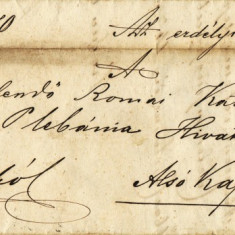 Az erdélyi
A
lendő Romai Kat
Plebánia Hivat
ból
Alsó Kap